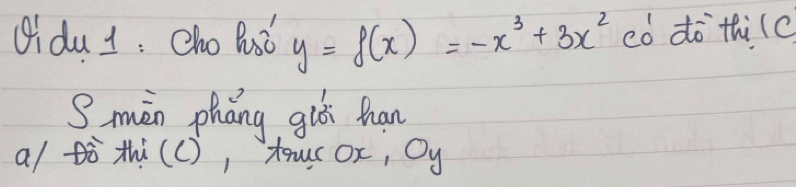 Ví dụ 1 : Cho hsố y = f(x) = -x³ + 3x² có đồ thị (C)
S miền phẳng giới hạn
a/ Đồ thị (C), trục Ox, Oy